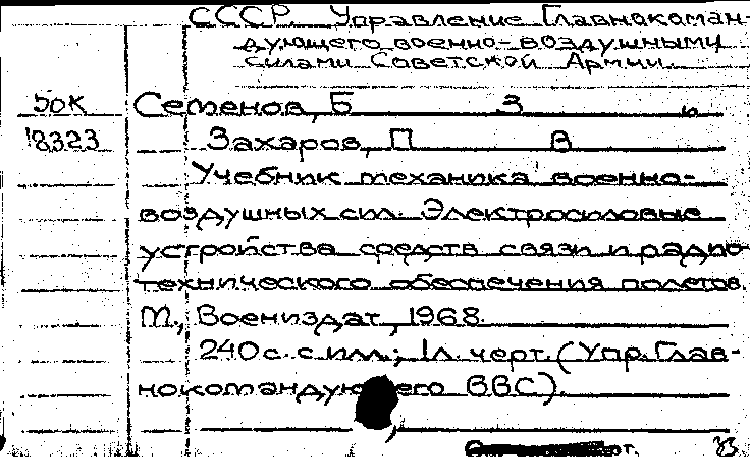 СССР Управление Главнокоман-
дующего военно-воздушными
силами Советской Армии.
50К Семенов, Б З и
18323 Захаров, П В
Учебник механика военно-
воздушных сил. Электросиловые
устройства средств связи и радио-
технического обеспечения полетов.
М., Воениздат, 1968.
240 с. с илл.; 1 л. черт. (Упр. Глав-
нокомандующего ВВС).
33